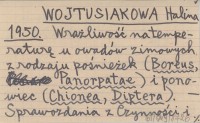 WOJTUSIAKOWA Halina
1950. Wrażliwość na tempe-
raturę u owadów zimowych
z rodzaju pośnieżek (Boreus,
Panorpatae) i pono-
wiec (Chionea, Diptera). -
Sprawozdania z Czynności i